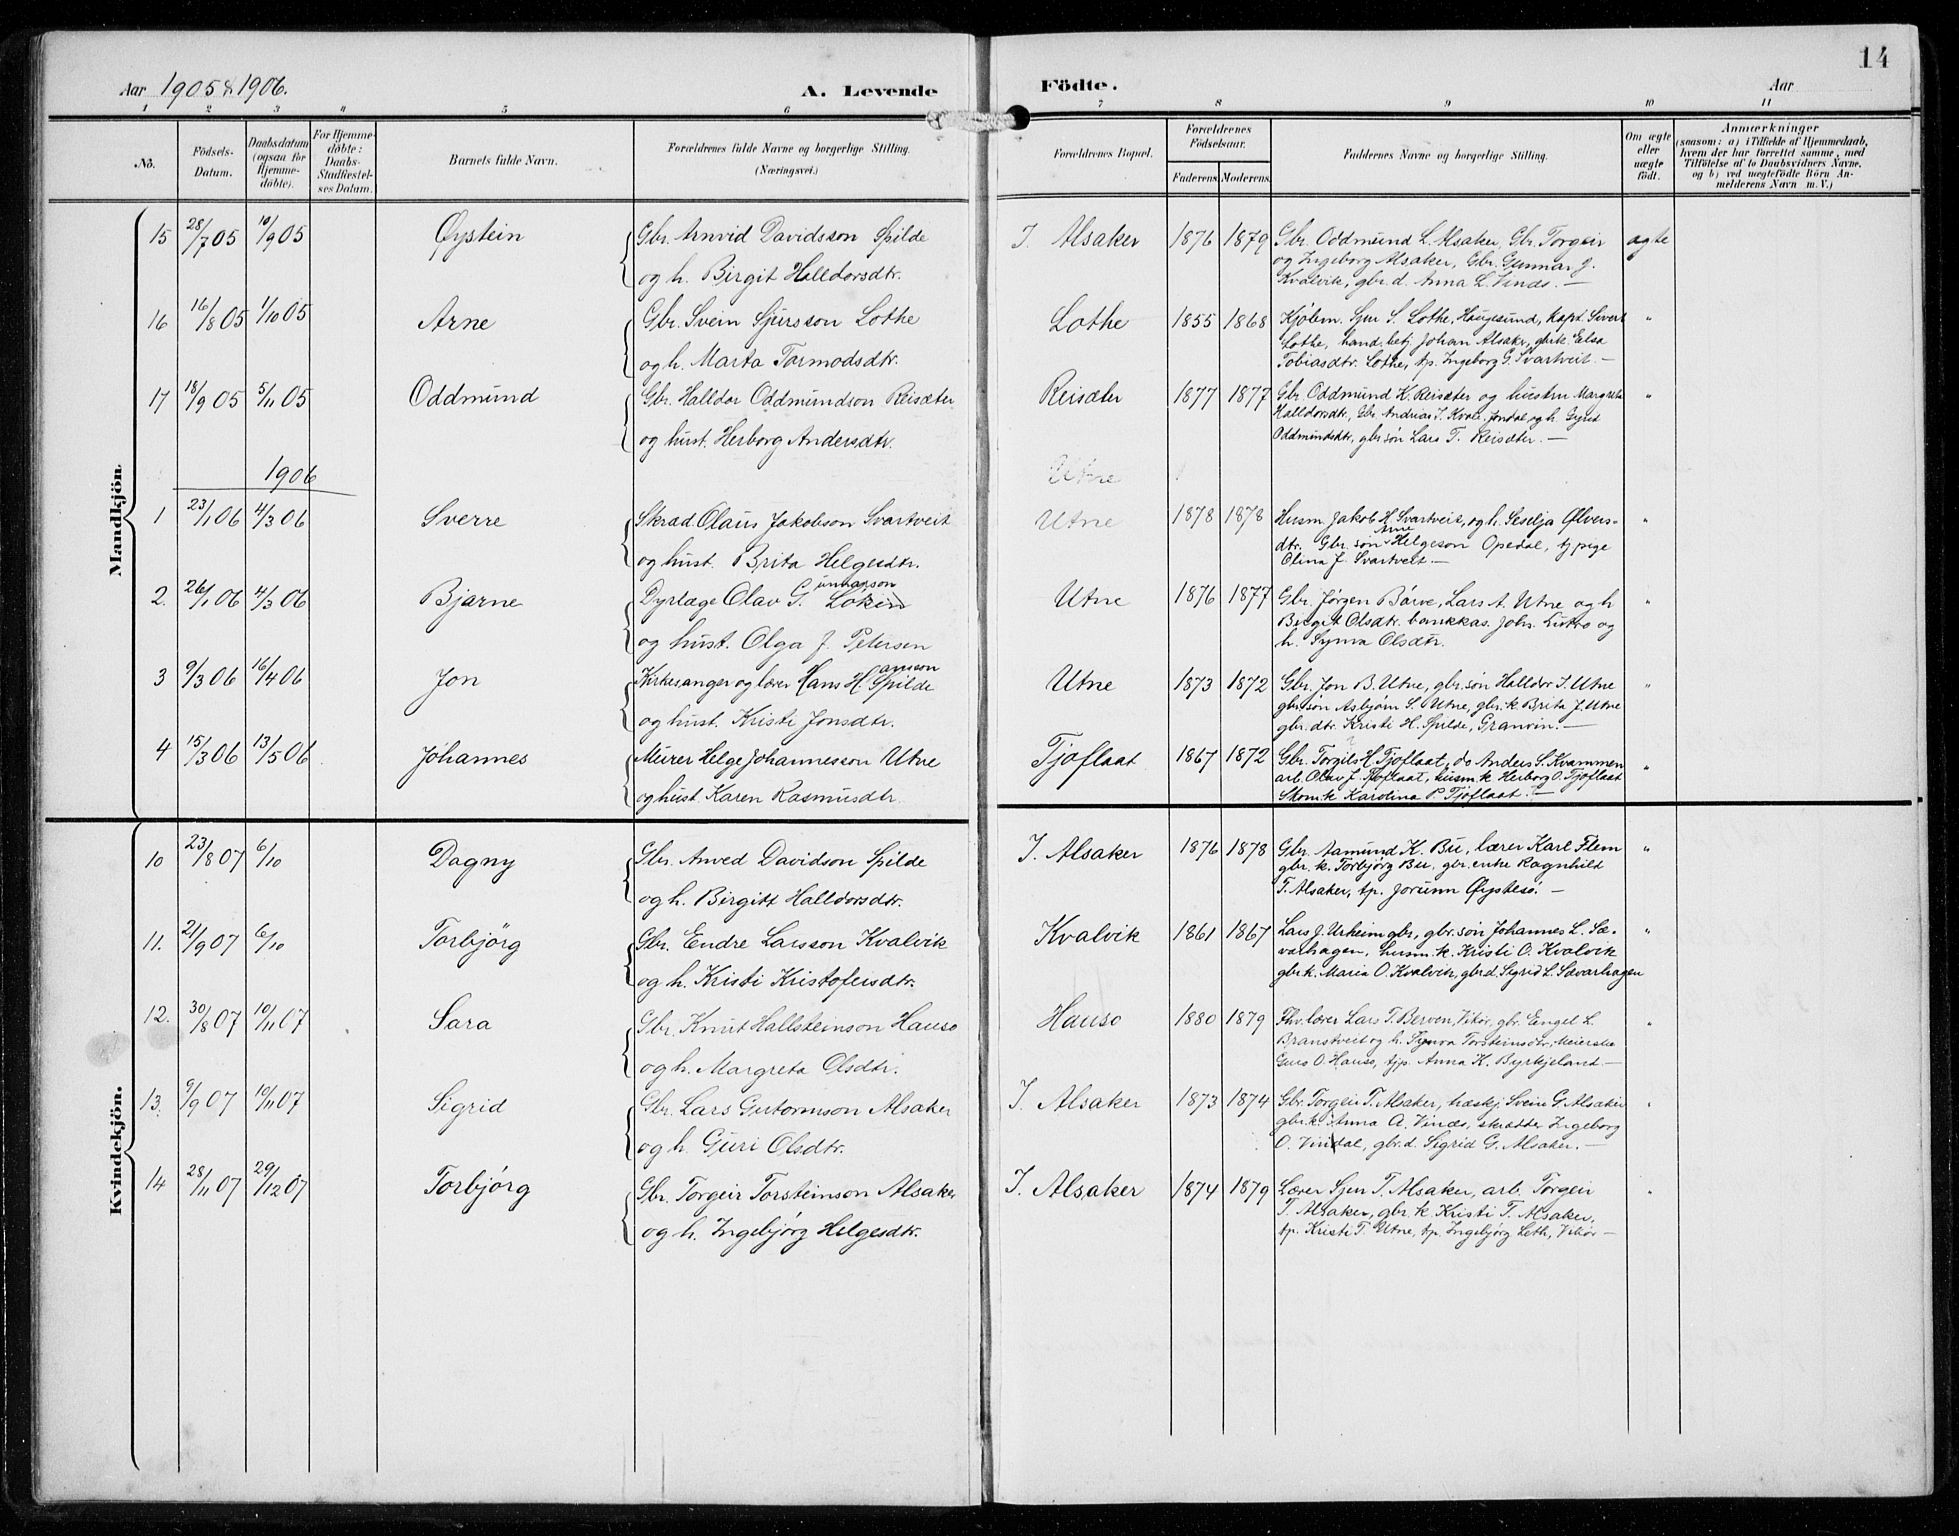 14
Aar 1905 & 1906. A. Levende Födte. Aar
1 2 3 4 5 6 7 8 9 10 11
No. Födsels-Datum. Daabsdatum (ogsaa for Hjemmedöbte). For Hjemmedöbte: Daabs-Stadfæstelses Datum. Barnets fulde Navn. Forældrenes fulde Navne og borgerlige Stilling. (Næringsvei.) Forældrenes Bopæl. Forældrenes Födselsaar. Faderens. Moderens. Faddernes Navne og borgerlige Stilling. Om ægte eller uægte födt. Anmærkninger (saasom: a) i Tilfælde af Hjemmedaab, hvem der har forrettet samme, med Tilföielse af to Daabsvidners Navne, og b) ved uægtefödte Börn Anmelderens Navn m. V.)
Mandkjön
15 28/7 05 10/9 05 Øystein Gbr. Arnvid Davidsson Spilde I. Alsaker 1876 1879 Gbr. Oddmund L. Alsaker, Gbr. Torgeir ægte
og Ingeborg Alsaker, Gbr. Gunnar J.
og h. Birgit Halldorsdtr. Kvalvik, gbr. d. Anna L. Vinæs. —
16 16/8 05 1/10 05 Arne Gbr. Svein Sjursson Lothe Lothe 1855 1868 Kjøbm. Sjur S. Lothe, Haugesund, kapt. Sivert "
Lothe, hand. betj. Johan Alsaker, gbr.k. Elsa
og h. Marta Tormodsdtr. Tobiasdtr. Lothe, tp. Ingeborg G. Svartveit. —
17 18/9 05 5/11 05 Oddmund Gbr. Halldor Oddmundson Reisæter Reisæter 1877 1877 Gbr. Oddmund K. Reisæter og hustru Margreta "
Halldorsdtr, Gbr Andreas J. Kvale, Jondal og h. Gyrid
og hust. Herborg Andersdtr. Oddmundsdtr, gbr søn Lars T. Reisæter. —
1906 Utne
1 23/1 06 4/3 06 Sverre Skræd. Olaus Jakobson Svartveit Utne 1878 1878 Husm. Jakob H. Svartveit, og h. Seselja Ølvers- "
dtr. Gbr. søn Arne Helgeson Opedal, tj pige
og hust. Brita Helgesdtr. Olina J. Svartveit. —
2. 26/1 06 4/3 06 Bjarne Dyrlæge Olav Gunnarson Lokin Utne 1876 1877 Gbr. Jørgen Børve, Lars A. Utne og h "
Birgit Olsdtr. bankkas. Johs. og
og hust. Olga J. Petersen h. Synva Olsdtr.
3 9/3 06 16/4 06 Jon Kirkesanger og lærer Hans Hansson Spilde Utne 1873 1872 Gbr. Jon B. Utne, gbr. søn Halldor J. Utne "
gbr. søn Asbjørn S. Utne, gbr. k. Brita J. Utne
og hust. Kristi Jonsdtr. gbr. dtr. Kristi H. Spilde, Granvin. —
4 15/3 06 13/5 06 Johannes Murer Helge Johannesson Utne Tjoflaat 1867 1872 Gbr. Torgils H Tjoflaat, do Anders S. Kvammen "
arb. Olav J. Tjoflaat, husm. k Herborg O. Tjoflaat
og hust. Karen Rasmusdtr. Skom. k Karolina P. Tjoflaat. —
Kvindekjön.
10 23/8 07 6/10 Dagny Gbr. Arved Davidson Spilde I. Alsaker 1876 1878 Gbr. Aamund K. Bu, lærer Karl Flem "
gbr. k. Torbjørg Bu, gbr. enke Ragnhild
og h. Birgitt Halldorsdtr. T. Alsaker, tp. Jorunn Øystesø. —
11. 21/9 07 6/10 Torbjörg Gbr. Endre Larsson Kvalvik Kvalvik 1861 1867 Lars J. Urheim gbr, gbr. søn Johannes L. Sæ- "
varhagen, husm. k. Kristi O. Kvalvik
og h. Kristi Kristofersdtr. gbr. k. Maria O. Kvalvik, gbr. d. Sigrid L. Sævarhagen
12. 30/8 07 10/11 07 Sara Gbr. Knut Hallsteinson Hauso Hauso 1880 1879 Fhv. lærer Lars T. Berven, Vikør, gbr. Engel L. "
Branstveit og h. Synva Torsteinsdtr, Meierske
og h. Margreta Olsdtr. Guro O. Hauso, tjp. Anna K. Byrkjeland —
13. 9/9 07 10/11 07 Sigrid Gbr. Lars Gutormson Alsaker I. Alsaker 1873 1874 Gbr. Torgeir T. Alsaker, træskj. Svein G. Alsaker "
gbr. k. Anna A. Vinæs, skrædder Ingeborg
og h. Guri Olsdtr. O. Vindal, gbr. d. Sigrid G. Alsaker. —
14 28/11 07 29/12 07 Torbjørg Gbr. Torgeir Torsteinson Alsaker I. Alsaker 1874 1879 Lærer Sjur T. Alsaker, arb. Torgeir "
T. Alsaker, gbr. k. Kristi T. Alsaker,
og h. Ingebjørg Helgesdtr. tp. Kristi T. Utne, tp. Ingebjørg Leth, Vikør —